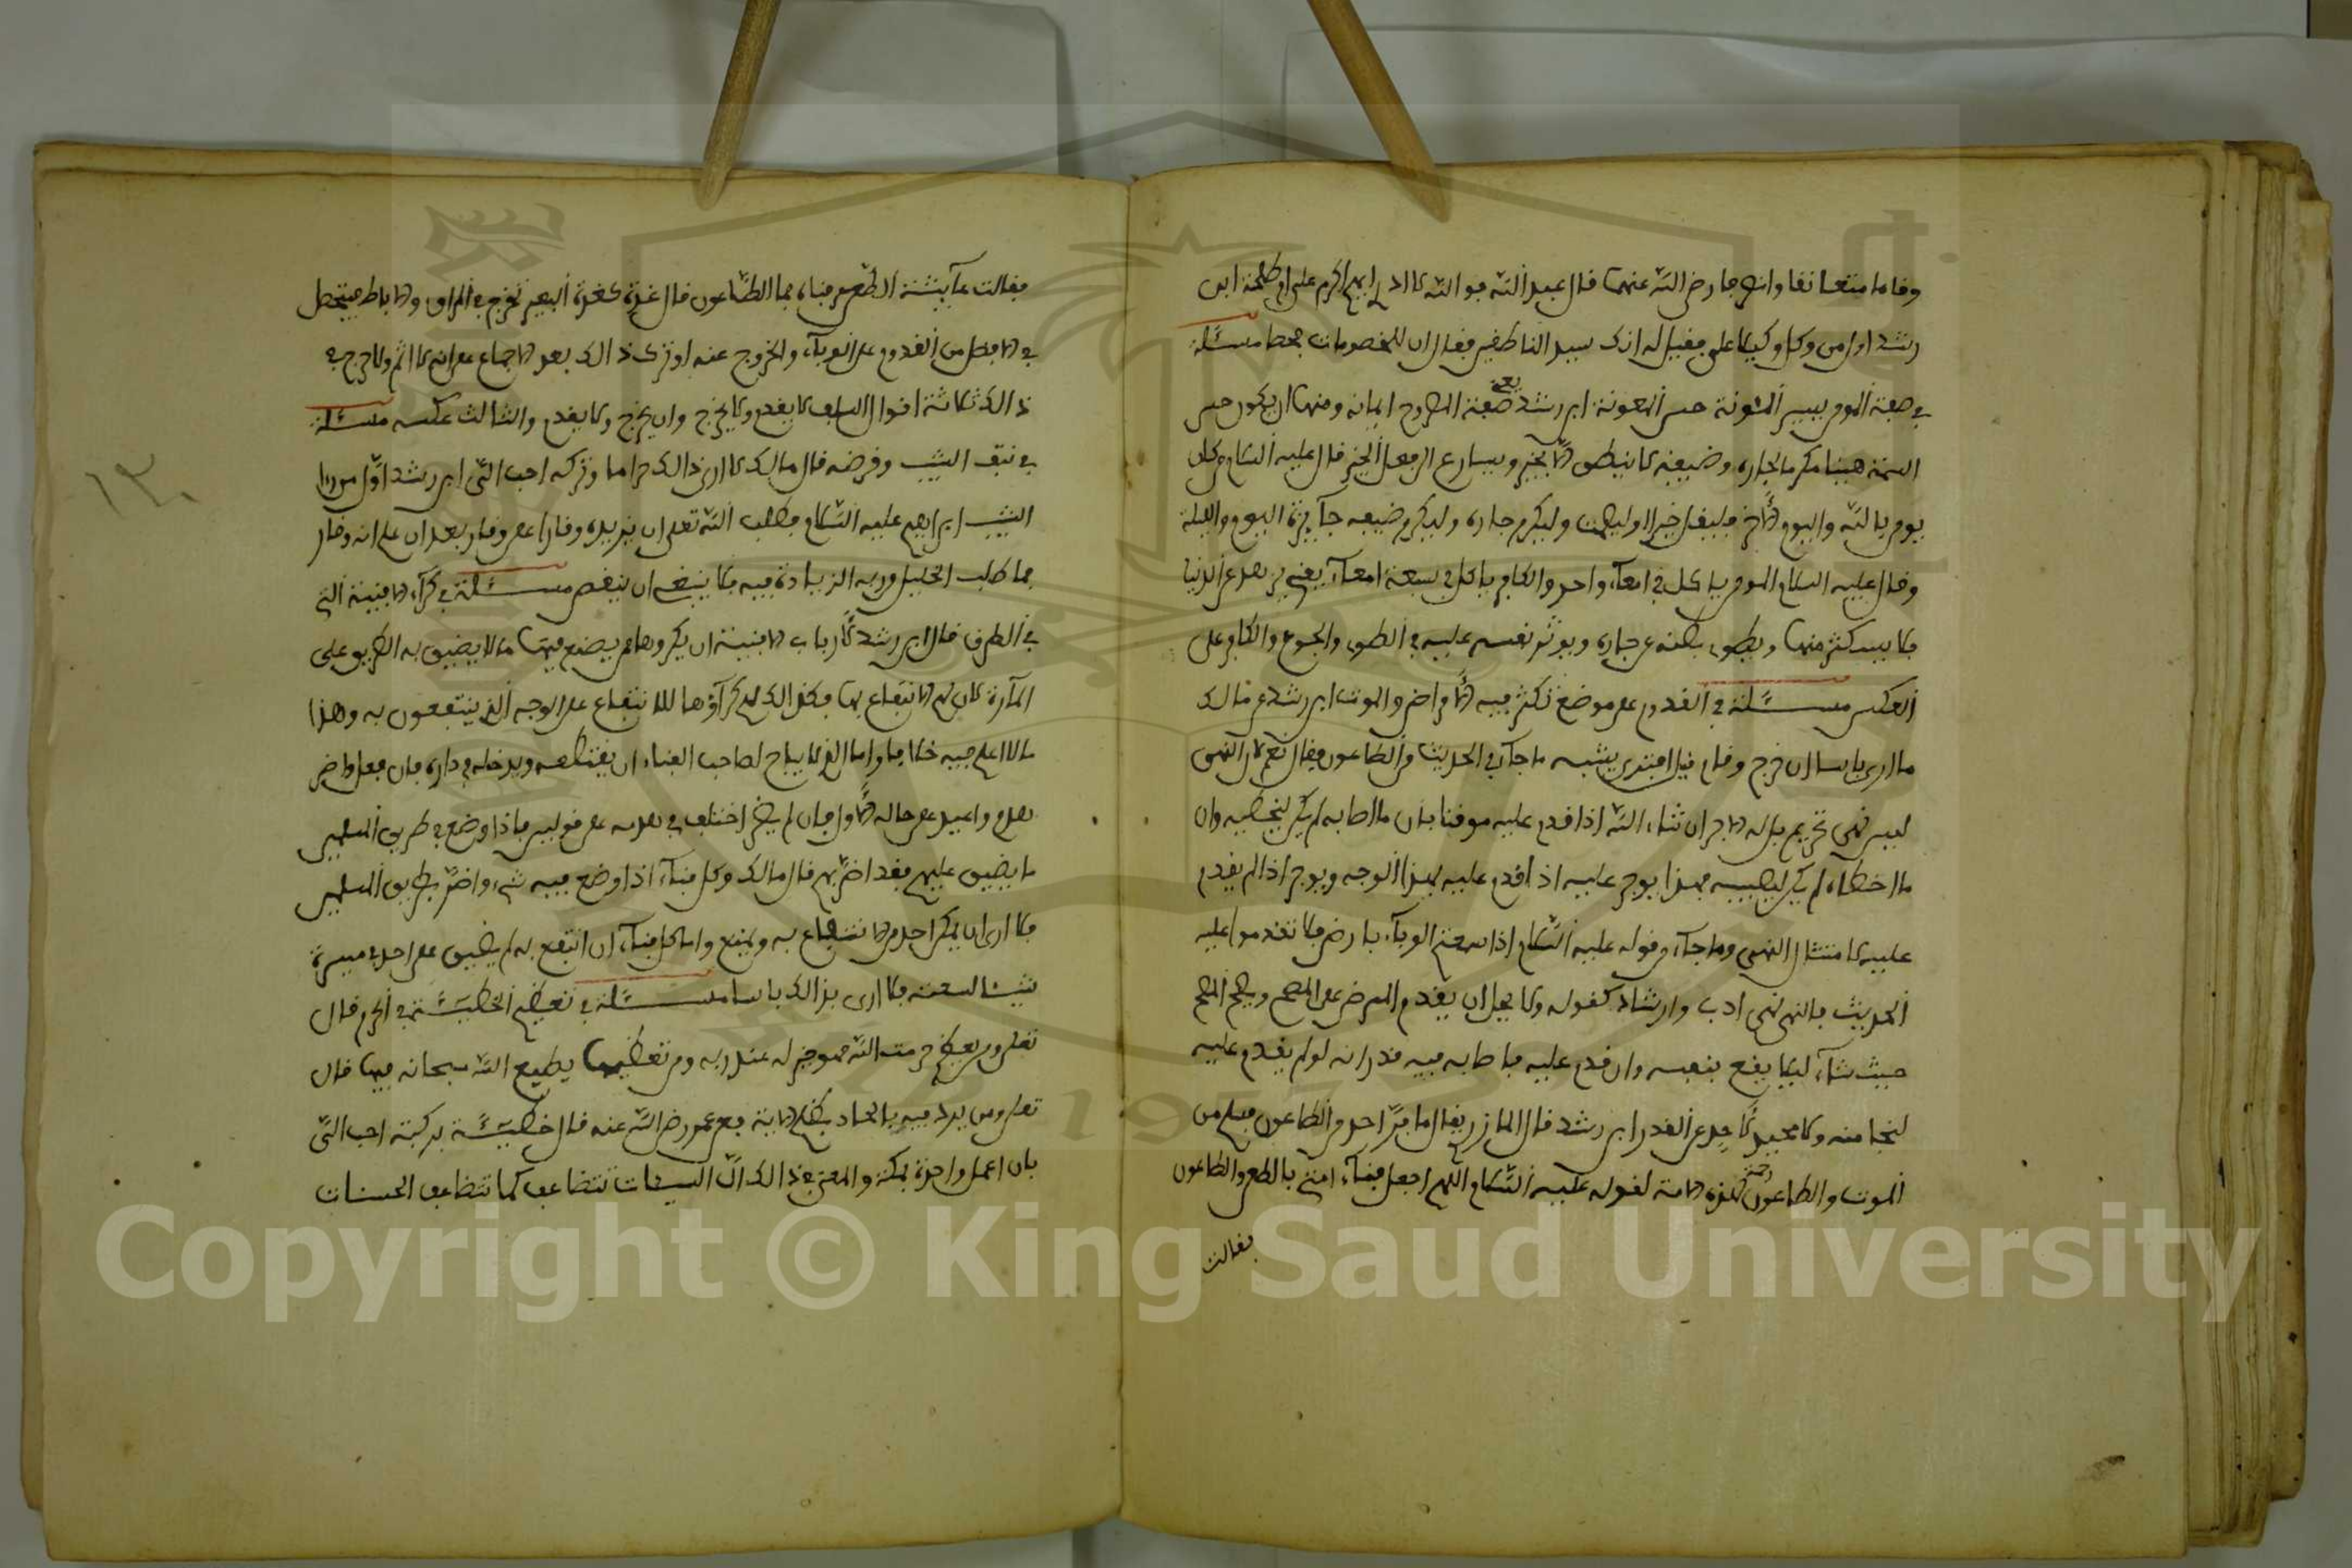 وقاما متعانقا وانصرجا رضي الله عنهما قال عبد الله فوالله لا ادري ايهم اكرم علي او طلحة ابن
رشد اول من وكل وكيلا علي فقيل له انك سيد الناطقين فقال ان للخصومات قحما مسئلة
في صفة المومن يسير المئونة حسن المعونة ابن رشد يعني صفة الممدوح ايمانه ومنها ان يكون حسن
السمة هينا مكرما لجاره وضيفه لا ينطق الا بخير ويسارع الى فعل الخير قال عليه السلام من كان
يومن بالله واليوم الاخر فليقل خيرا او ليصمت وليكرم جاره وليكرم ضيفه جآيزته اليوم والليلة
وقال عليه السلام المومن ياكل في امعآء واحد والكافر ياكل في سبعة امعآء يعني يزهد في الدنيا
فلا يستكثر منها ويطوي بطنه عن جاره ويوثر نفسه عليه في الطوى والجوع والكافر على
العكس مسئلة في القدوم على موضع تكثر فيه الامراض والموت ابن رشد عن مالك
ما ارى باسا ان خرج وقام قيل افترى يشبه ما جآء في الحديث من الطاعون فقال نعم لان النهي
ليس نهي تحريم بل له الاجر ان شاء الله اذا قدم عليه موقنا بان ما اصابه لم يكن ليخطيه وان
ما اخطاه لم يكن ليصيبه فهذا يوجر عليه اذا قدم عليه بهذا الوجه ويوجر اذا لم يقدم
عليه لامتثال النهي وما جآء من قوله عليه السلام اذا سمعتم الوبآء بارض فلا تقدموا عليه
الحديث فالنهي نهي ادب وارشاد كقوله ولا يحل ان يقدم الممرض على المصح ويحل المصح
حيث شآء ليلا يقع بنفسه وان قدم عليه فاصابه فيه قدر انه لو لم يقدم عليه
لنجا منه ولا محيد لاحد عن القدر ابن رشد قال المازري يقال ما فرّ احد من الطاعون فسلم من
الموت والطاعون رحمة لهذه الامة لقوله عليه السلام اللهم اجعل فنآء امتي بالطعن والطاعون
فقالت
فقالت عآيشة الطعن عرفناه فما الطاعون قال غدة كغدة البعير تخرج في المراق والاباط فيتحصل
في الافضل من القدوم على الوبآء والخروج عنه او ترك ذالك بعد الاجماع على انه لا اثم ولا حرج في
ذالك ثلاثة اقوال السلف لا يقدم ولا يخرج وان يخرج ولا يقدم والثالث عكسه مسئلة
في نتف الشيب وقرضه قال مالك لا ارى ذالك حراما وتركه احب الي ابن رشد اول من راى
الشيب ابراهيم عليه السلام فطلب الله تعلى ان يزيده وقارا على وقار بعد ان علم انه وقار
فما طلب الخليل وربه الزيادة فيه فلا ينبغي ان ينقص مسئلة في كرآء الافنية التي
في الطرق قال ابن رشد لارباب الافنية ان يكروها ممن يضع فيها ما لا يضيق به الطريق على
المآرة لان لهم الانتفاع بها فكذالك لهم كرآؤها للانتفاع على الوجه الذي ينتفعون به وهذا
ما لا اعلم فيه خلافا واما الذي لا يباح لصاحب الفناء ان يقتطعه ويدخله في داره فان فعل واضر
هدم واعيد على حاله الاول وان لم يضر اختلف في هدمه على قولين فاذا وضع في طريق المسلمين
ما يضيق عليهم فقد اضر بهم قال مالك وكل فنآء اذا وضع فيه شيء واضر بطريق المسلمين
فلا ارى ان يمكن احد من الانتفاع به ويمنع واما كل فنآء ان انتفع به لم يضيق على احد من مسيرة
شيئا لسعته فلا ارى بذالك باسا مسئلة في تعظيم الخطيئة في الحرم قال
تعلى ومن يعظم حرمت الله فهو خير له عند ربه ومن تعظيمها يطيع الله سبحانه فيها قال
تعلى ومن يرد فيه بالحاد بظلم الاية فمع عمر رضي الله عنه قال خطيئة بركبة احب الي
بان اعمل واحدة بمكة والمعنى في ذالك ان السيئات تتضاعف كما تتضاعف الحسنات
١٣٠
Copyright © King Saud University